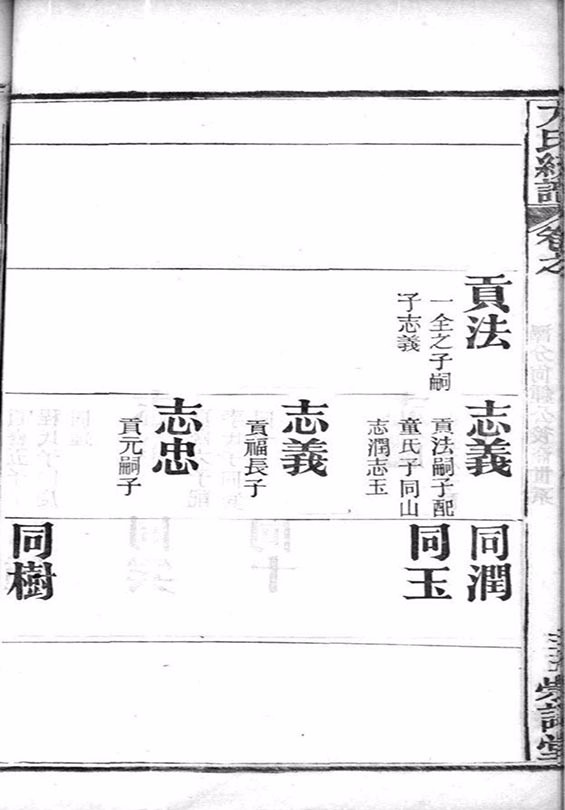 方氏統譜
卷之
貢法
一全之子嗣
子志義
志義
貢法嗣子配
童氏子同山
志潤志玉
志義
貢福長子
志忠
貢元嗣子
同潤
同玉
同樹